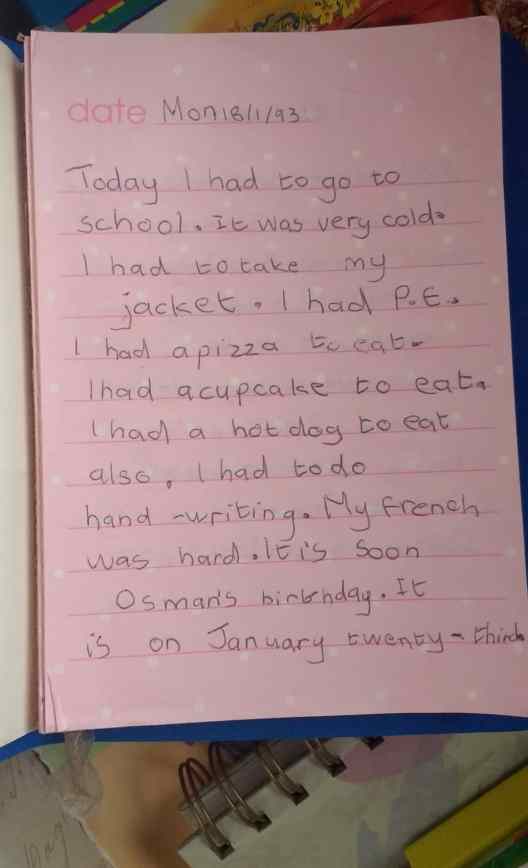 date Mon 18/1/93
Today I had to go to
school. It was very cold.
I had to take my
jacket. I had P.E.
I had a pizza to eat.
I had a cupcake to eat.
I had a hot dog to eat
also, I had to do
hand-writing. My french
was hard. It is soon
Osman's birthday. It
is on January twenty-third